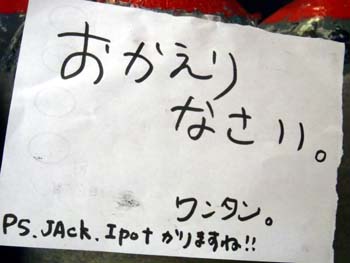 おかえり
なさい。
ワンタン。
PS. JAck. Ipot かりますね!!